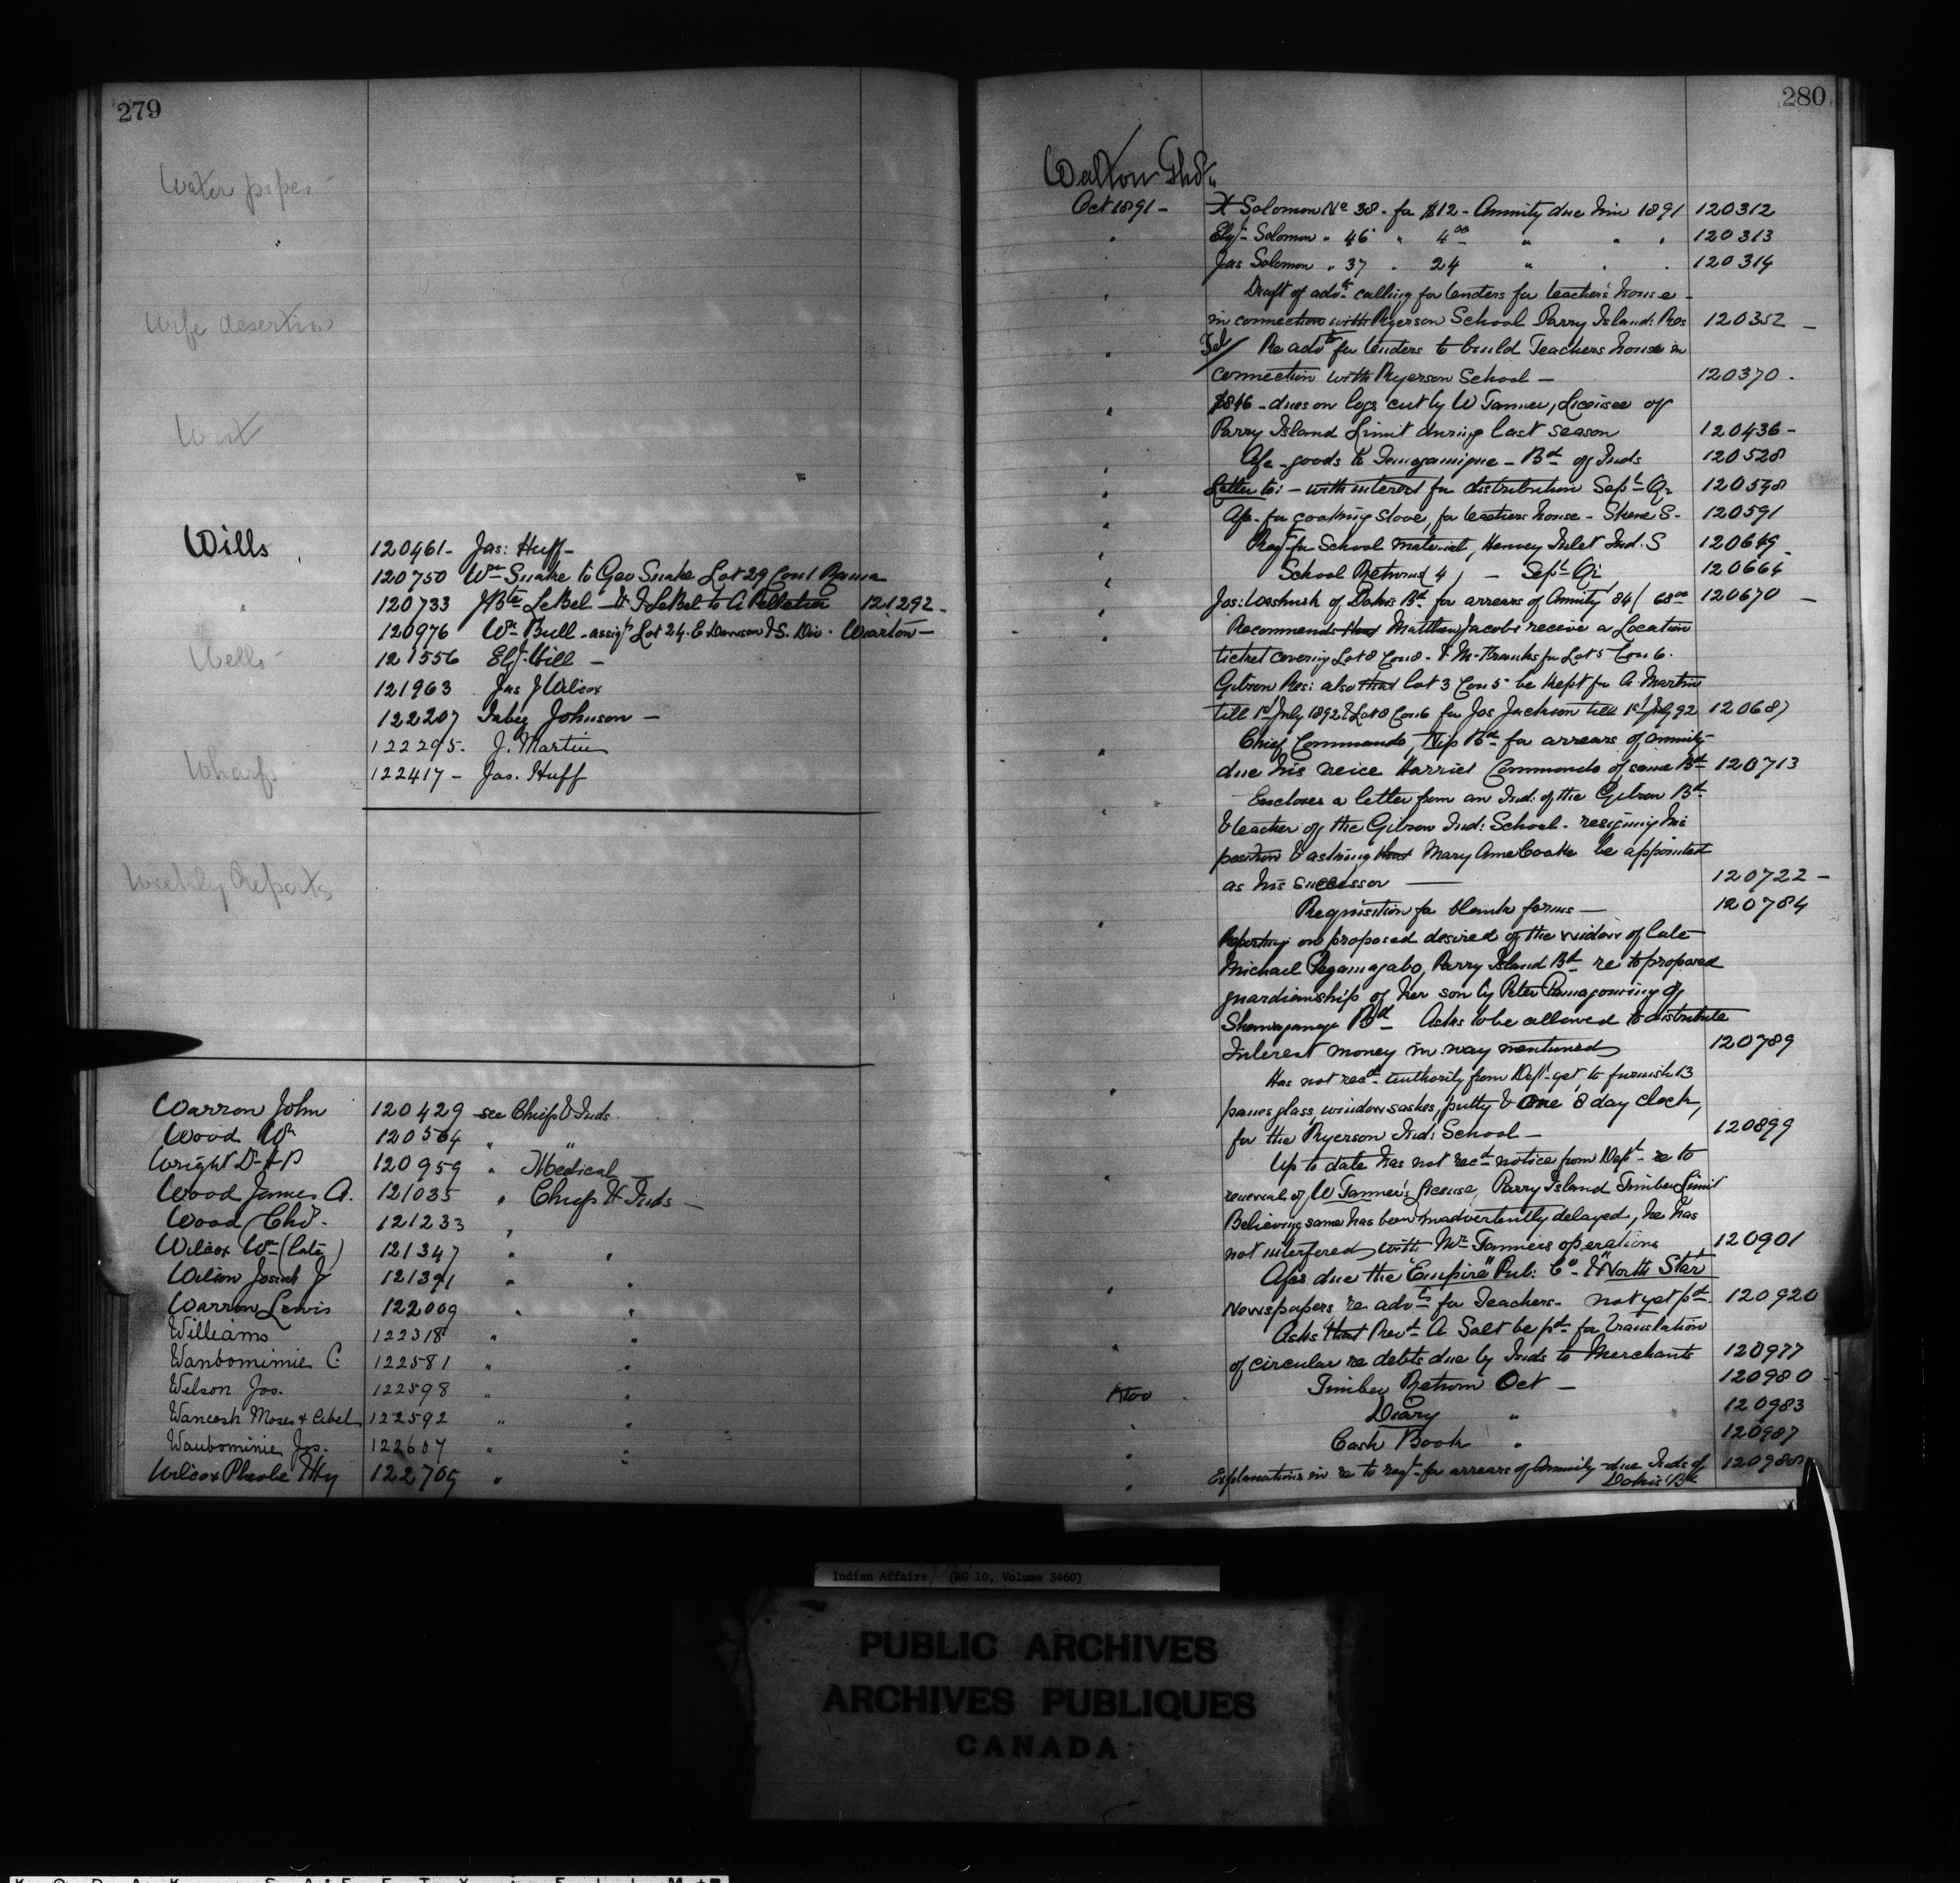 279
Water pipes
Wife desertion
Writ
Wills
120461 - Jas: Huff -
120750 Wm Snake to Geo Snake Lot 29 Con 1 Rama
120733 J Bte LeBel - & J LeBel to A Pelletier 121292 -
120976 Wm Bull - assigt Lot 24. E Davison & S. Div. Wiarton -
Wells -
121556 Elijh Hill -
121963 Jas J Wilcox
122207 Jabez Johnson -
122295. J. Martin
122417 - Jas. Huff
Wharf
Weekly Reports
Warron John 120429 see Chiefs & Inds.
Wood Wm 120564 " "
Wright D- 120959 " Medical
Wood James A. 121035 " Chiefs & Inds -
Wood Chs. 121233 "
Wilcox Wm (late) 121347 " "
Wilson Josiah J 121391 " "
Warron Lewis 122009 " "
Williams 122318 " "
Wanbominie C. 122581 " "
Wilson Jos. 122598 " "
Wancosh Moses & Abel 122592 " "
Waubominie Jos. 122607 " "
Wilcox Phoebe & Hy 122705 "
280
Walton Thos
Oct 1891 - X Solomon No 38 - for $12 - Annuity due him 1891 120312
" Elijh Solomon " 46 " 4 00 " " " 120313
Jas Solomon " 37 " 24 " " " 120314
" Draft of advt calling for tenders for teacher's house -
in connection with Ryerson School Parry Island: Res 120352 -
" Tel / Re advt for tenders to build Teachers house in
connection with Ryerson School - 120370 .
" $846 - dues on logs cut by W Tanner, Licensee of
Parry Island Limit during last season 120436 -
" A/c - goods to Temogamigue - Bd of Inds 120528
" Letter to: - with interest for distribution Sept Qr 120598
" Ap. for cooking stove, for teachers house - Skene S - 120591
" Reqt for School material, Henvey Inlet Ind. S 120649 -
" School Returns (4) - Sept Qr 120664
" Jos: Washusk of Dokis Bd for arrears of Annuity '84 / 68 00 120670 -
" Recommends that Matthew Jacobs receive a Location
ticket covering Lot 8 Con 8 - & M. Franks for Lot 5 Con 6.
Gibson Res: also that lot 3 Con 5 be kept for A. Martin
till 1st July 1892 & Lot 8 Con 6 for Jos Jackson till 1st July 92 120687
" Chief Commando, Nip Bd for arrears of annuity
due his neice Harriet Commando of same Bd 120713
" Encloses a letter from an Ind: of the Gibson Bd
& teacher of the Gibson Ind: School - resigning his
position & asking that Mary Ame Cooke be appointed
as his successor — 120722 -
" Requisition for blank forms — 120784
Reporting on proposed desired of the widow of late
Michael Pegamagabo, Parry Island Bd re to proposed
guardianship of her son by Peter Pamagouning of
Shawanaga Bd Asks to be allowed to distribute
Interest money in way mentioned 120789
" Has not recd authority from Dept yet to furnish 13
panes glass, window sashes, putty & One 8 day clock,
for the Ryerson Ind: School - 120899
" Up to date has not recd notice from Dept - re to
renewal of W Tanner's license, Parry Island Timber Limit
Believing same has been inadvertently delayed, he has
not interfered with Mr Tanners operations 120901
" A/cs due the "Empire" Pub: Co - & "North Star"
Newspapers re advts for Teachers - not yet pd. 120920
" Asks that Revd A Salt be pd for translation
of circular re debts due by Inds to Merchants 120977
Nov Timber Return Oct - 120980
" Diary " 120983
" Cash Book " 120987
" Explanations in re to reqt for arrears of Annuity due Inds of 120988
Dokis' Bd
Indian Affairs (RG 10, Volume 3460)
PUBLIC ARCHIVES
ARCHIVES PUBLIQUES
CANADA